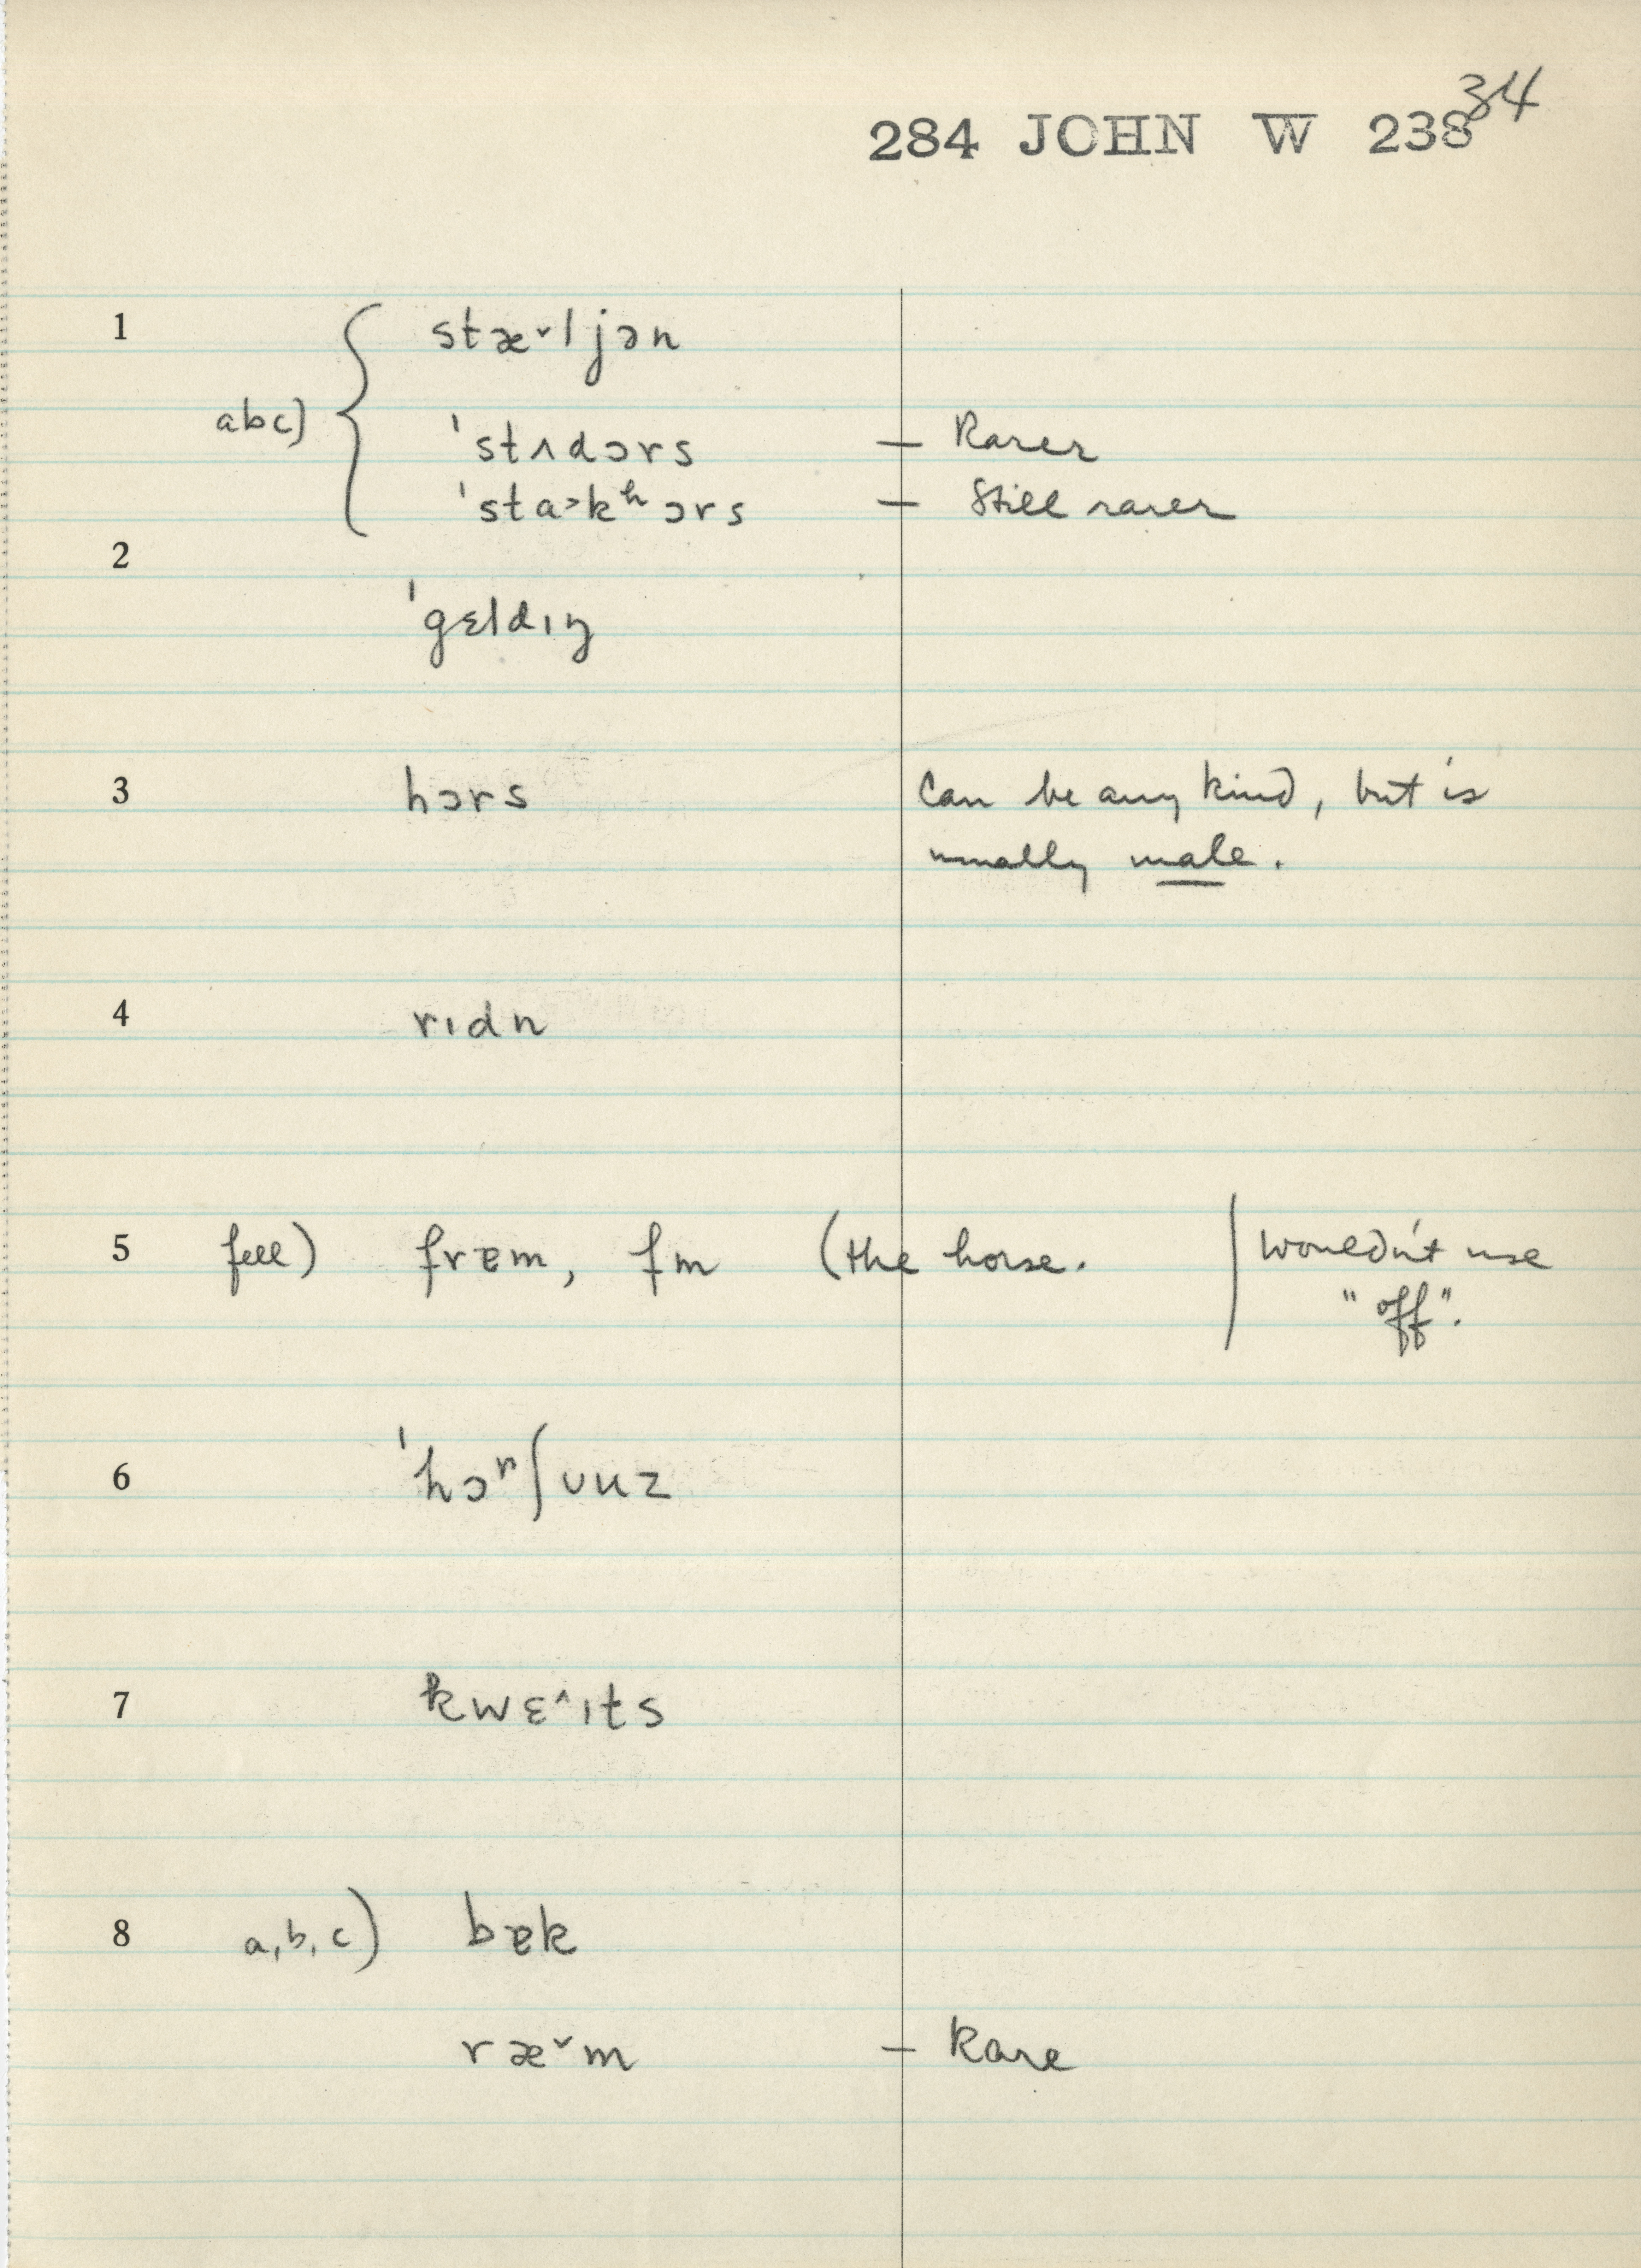 34
284 JOHN W 238
1 stæ˅ljən
abc) { ˈstʌdɔrs – Rarer
ˈsta˃kʰɔrs – Still rarer
2
ˈgɛldɪŋ
3 hɔrs Can be any kind, but is
usually male.
4 rɪdn
5 fell) frɐm, fm (the horse. | wouldn't use
"off".
6 ˈhɔʳʃʊuz
7 kwɛ˄ɪts
8 a, b, c) bɐk
ræ˅m – Rare